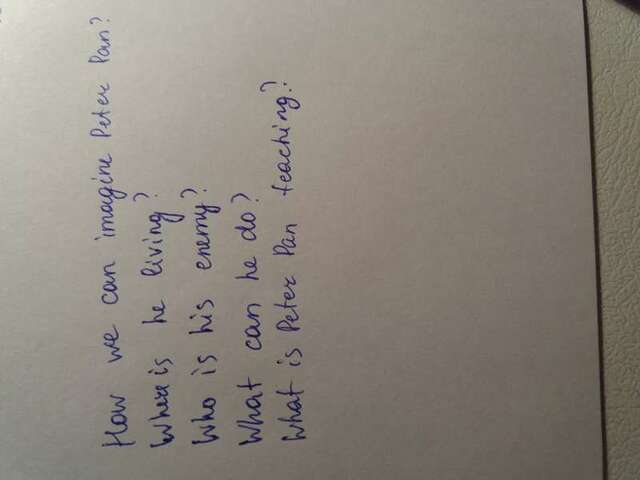 How we can imagine Peter Pan?
Where is he living?
Who is his enemy?
What can he do?
What is Peter Pan teaching?